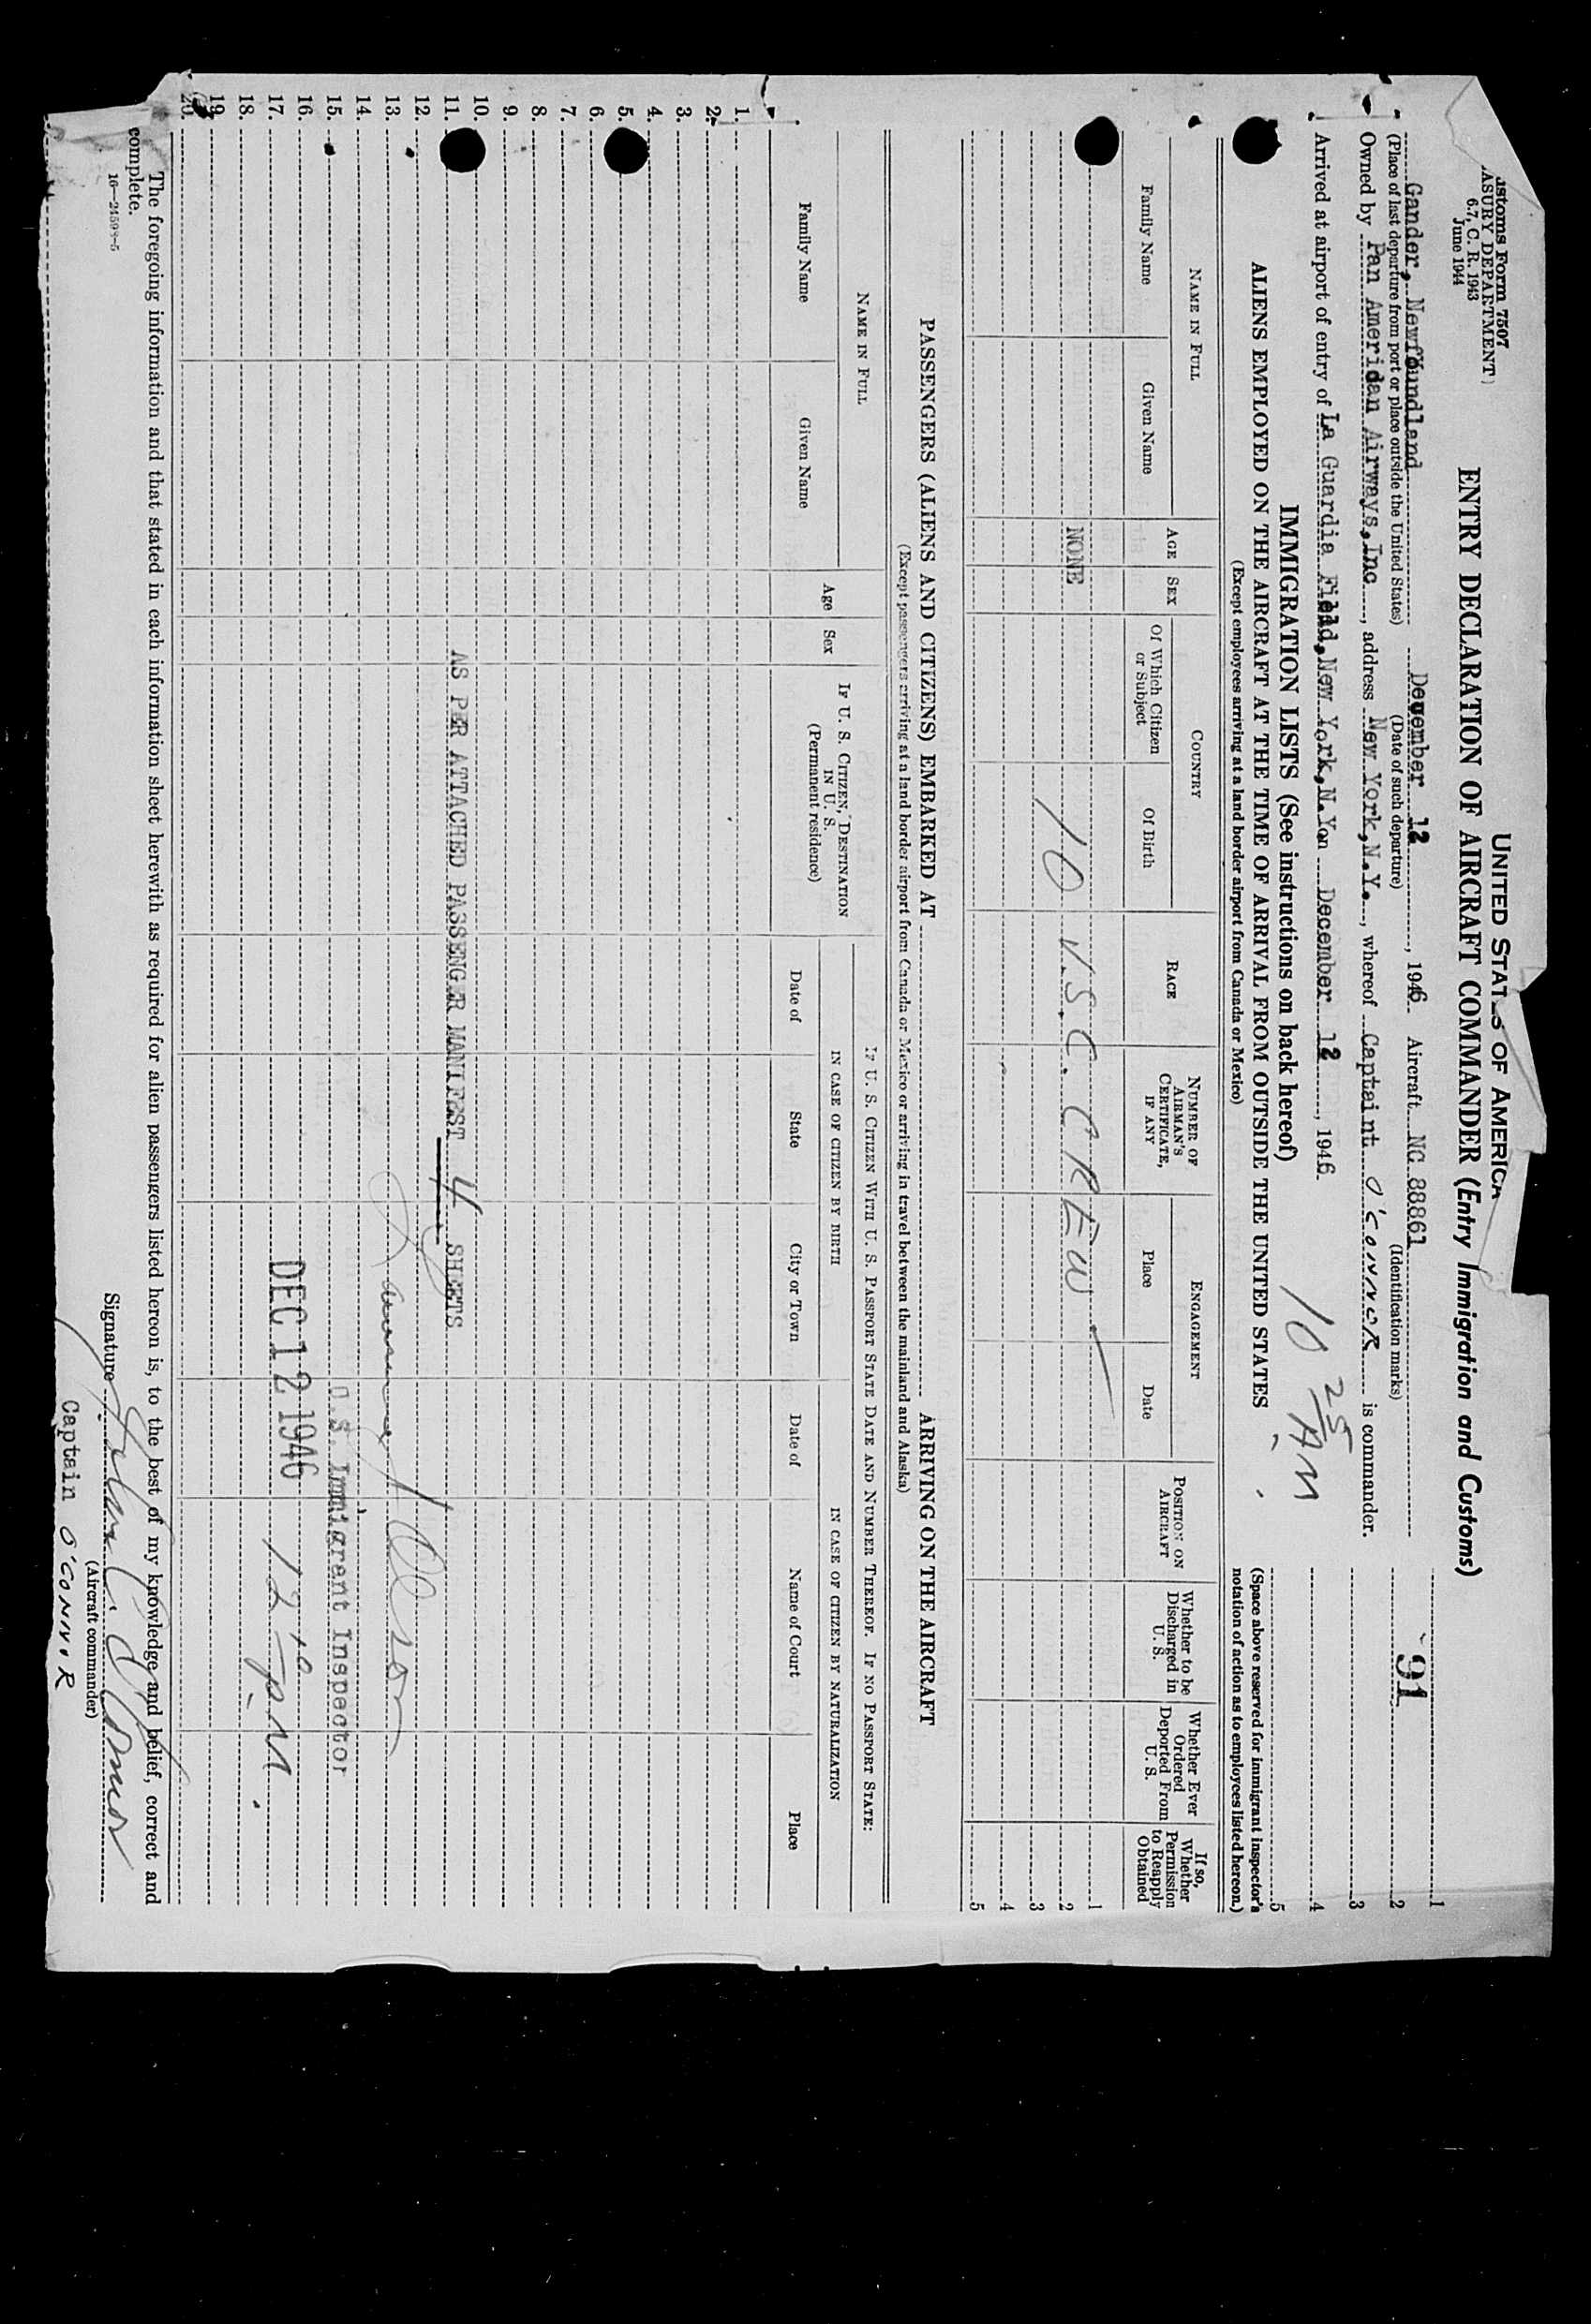 UNITED STATES OF AMERICA
ustoms Form 7507
ASURY DEPARTMENT
6.7, C. R. 1943
June 1944
ENTRY DECLARATION OF AIRCRAFT COMMANDER (Entry Immigration and Customs)
91
Gander, Newfoundland December 12, 1946. Aircraft NC 88861
(Place of last departure from port or place outside the United States) (Date of such departure) (Identification marks)
Owned by Pan Ameridan Airways, Inc, address New York, N.Y., whereof Captaint O'CONNOR is commander.
Arrived at airport of entry of La Guardia Field, New York, N.Y. on December 12, 1946.
10 25 AM
1
2
3
4
5
(Space above reserved for immigrant inspector's notation of action as to employees listed hereon.)
IMMIGRATION LISTS (See instructions on back hereof)
ALIENS EMPLOYED ON THE AIRCRAFT AT THE TIME OF ARRIVAL FROM OUTSIDE THE UNITED STATES
(Except employees arriving at a land border airport from Canada or Mexico)
NAME IN FULL
Family Name
Given Name
AGE
SEX
COUNTRY
Of Which Citizen or Subject
Of Birth
RACE
NUMBER OF AIRMAN'S CERTIFICATE, IF ANY
ENGAGEMENT
Place
Date
POSITION ON AIRCRAFT
Whether to be Discharged in U. S.
Whether Ever Ordered Deported From U. S.
If so, Whether Permission to Reapply Obtained
NONE
10 U.S.C. CREW
1
2
3
4
5
PASSENGERS (ALIENS AND CITIZENS) EMBARKED AT ARRIVING ON THE AIRCRAFT
(Except passengers arriving at a land border airport from Canada or Mexico or arriving in travel between the mainland and Alaska)
NAME IN FULL
Family Name
Given Name
Age
Sex
IF U. S. CITIZEN, DESTINATION IN U. S.
(Permanent residence)
IF U. S. CITIZEN WITH U. S. PASSPORT STATE DATE AND NUMBER THEREOF. IF NO PASSPORT STATE:
IN CASE OF CITIZEN BY BIRTH
IN CASE OF CITIZEN BY NATURALIZATION
Date of
State
City or Town
Date of
Name of Court
Place
1.
2.
3.
4.
5.
6.
7.
8.
9.
10.
11. AS PER ATTACHED PASSENGER MANIFEST 4 SHEETS
12.
13.
14.
15. U.S. Immigrant Inspector
16.
17. DEC 12 1946 12 10 PM.
18.
19.
20.
The foregoing information and that stated in each information sheet herewith as required for alien passengers listed hereon is, to the best of my knowledge and belief, correct and
complete.
16—24598-5
Signature
(Aircraft commander)
Captain O'CONNOR